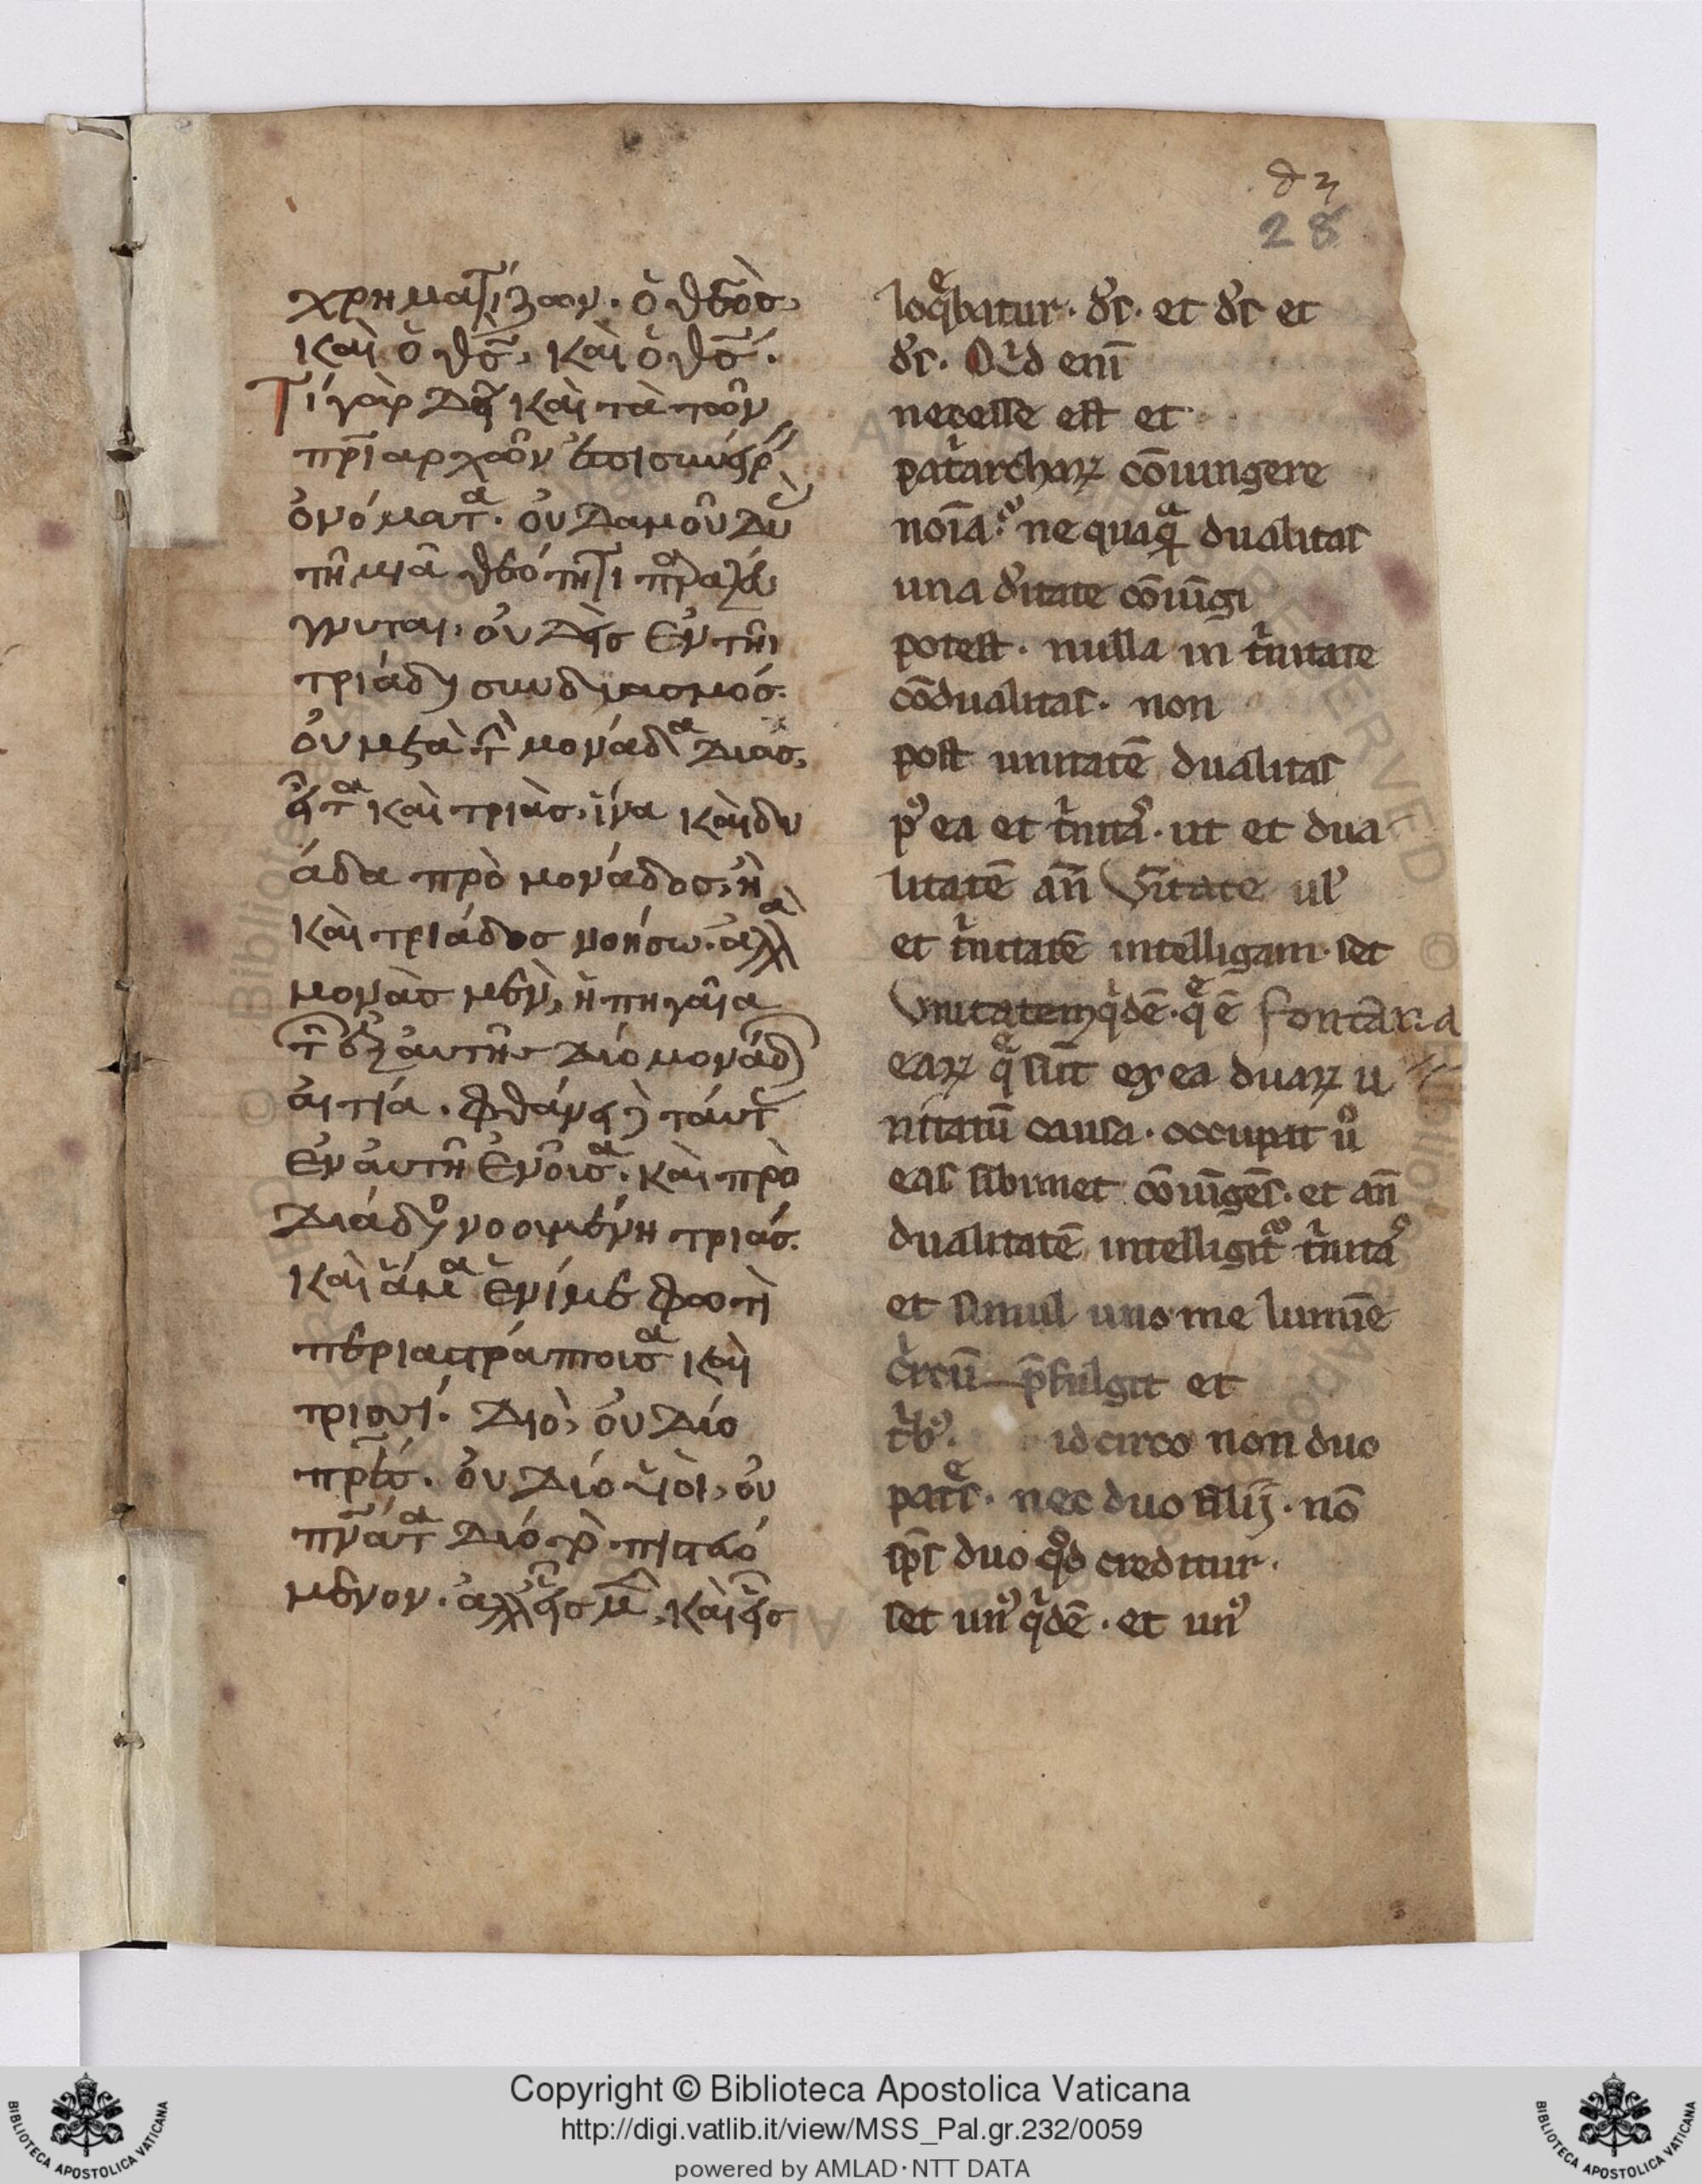 28
χρηματίζων. ὁ θεὸς,
καὶ ὁ θ̅ς̅, καὶ ὁ θ̅ς̅.
Τί γὰρ δεῖ καὶ τὰ τῶν
πρ̅ιαρχῶν
ὀνόματ. οὐδαμοῦ δυ
τῆ μιᾶ θεότητι
γνυται. οὐδεὶς ἐν τῆι
τριάδι συνδυασμός.
οὐ μετὰ τ̅ μονάδα δυάς,
εἶτα καὶ τριὰς. ἵνα καὶ δυ
άδα πρὸ μονάδος, ἢ
καὶ τριάδος νοήσω. ἀλλὰ
μονὰς μὲν, ἡ πηγαία
τ̅ ἐξ αὐτῆς δύο μονάδ
αἰτία. φθάνει ταύτ
ἐν αὐτῆ ἑνοῦσα. καὶ πρὸ
δυάδο νοουμένη τριάς.
καὶ ἅμα ἑνί με φωτὶ
περιαστράπτουσα καὶ
τρισί. Διὸ, οὐ δύο
πρ̅ες. οὐ δύο υἱοὶ, οὐ
πν̅ατα δύο τὸ πιστευό
μενον. ἀλλ εἷς μ̅, καὶ εἷς
loq̅batur. ds̅. et ds̅ et
ds̅. Qid eni̅
necesse est et
pat̅archaꝝ co̅iungere
noi̅a. ne quaq̅ dualitas
una d̅itate co̅iu̅gi
potest. nulla in t̅nitate
co̅dualitas. non
post unitate̅ dualitas
p᷒ ea et t̅nita᷒. ut et dua
litate̅ an̅ Vnitate ul᷒
et t̅nitate̅ intelligam. set
Vnitatem q̅de̅. q̅ e̅ fontana
eaꝝ q̅ su̅t ex ea duaꝝ u
nitatu̅ causa. occupat u̅
eas sibimet co̅iu̅ge̅s. et an̅
dualitate̅ intelligit᷒ t̅nita᷒
et simul uno me lumi̅e
circu̅ p̅fulgit et
t̅b᷒. idcirco non duo
pat̅s. nec duo filij. no̅
sp̅s duo qd̅ creditur.
set un᷒ q̅de̅. et un᷒
Copyright © Biblioteca Apostolica Vaticana
http://digi.vatlib.it/view/MSS_Pal.gr.232/0059
powered by AMLAD·NTT DATA
BIBLIOTECA APOSTOLICA VATICANA
BIBLIOTECA APOSTOLICA VATICANA